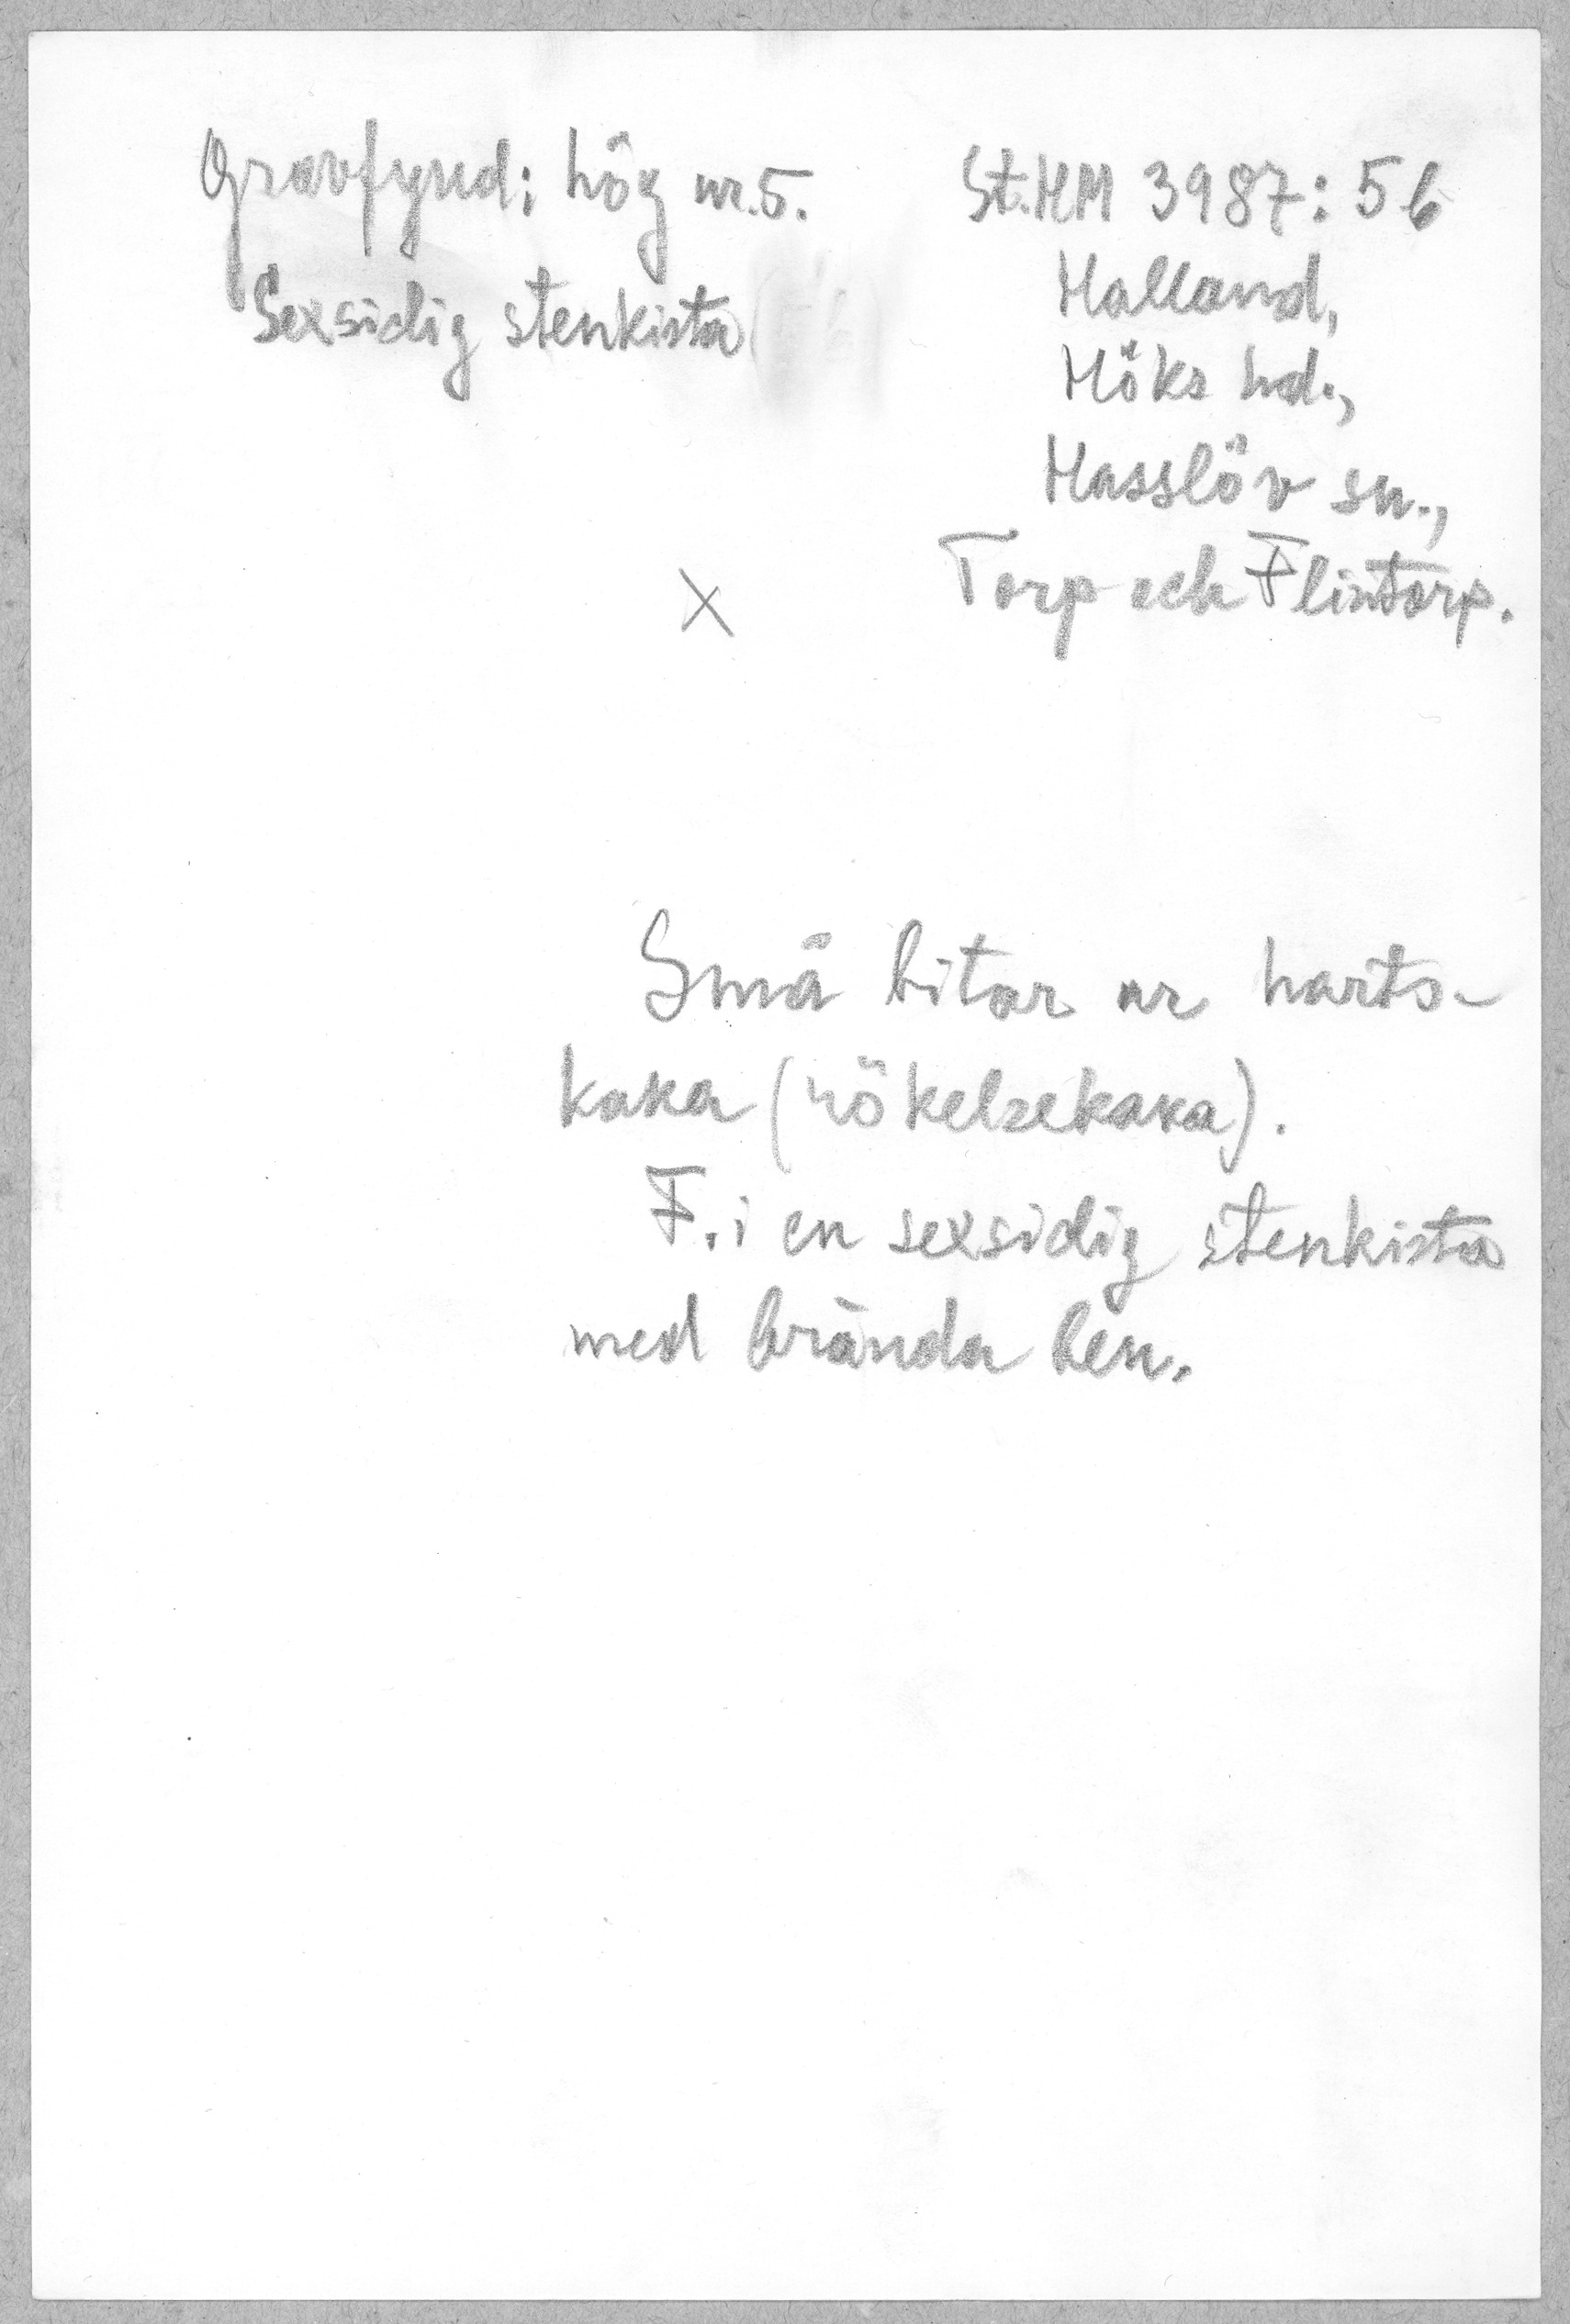 Gravfynd; hög nr. 5.
Sexsidig stenkista
St. HM 3987: 56
Halland,
Höks hd.,
Hasslöv sn.,
Torp och Flintorp.
X
Små bitar ur harts-
kaka (rökelsekaka).
F. i en sexsidig stenkista
med brända ben.